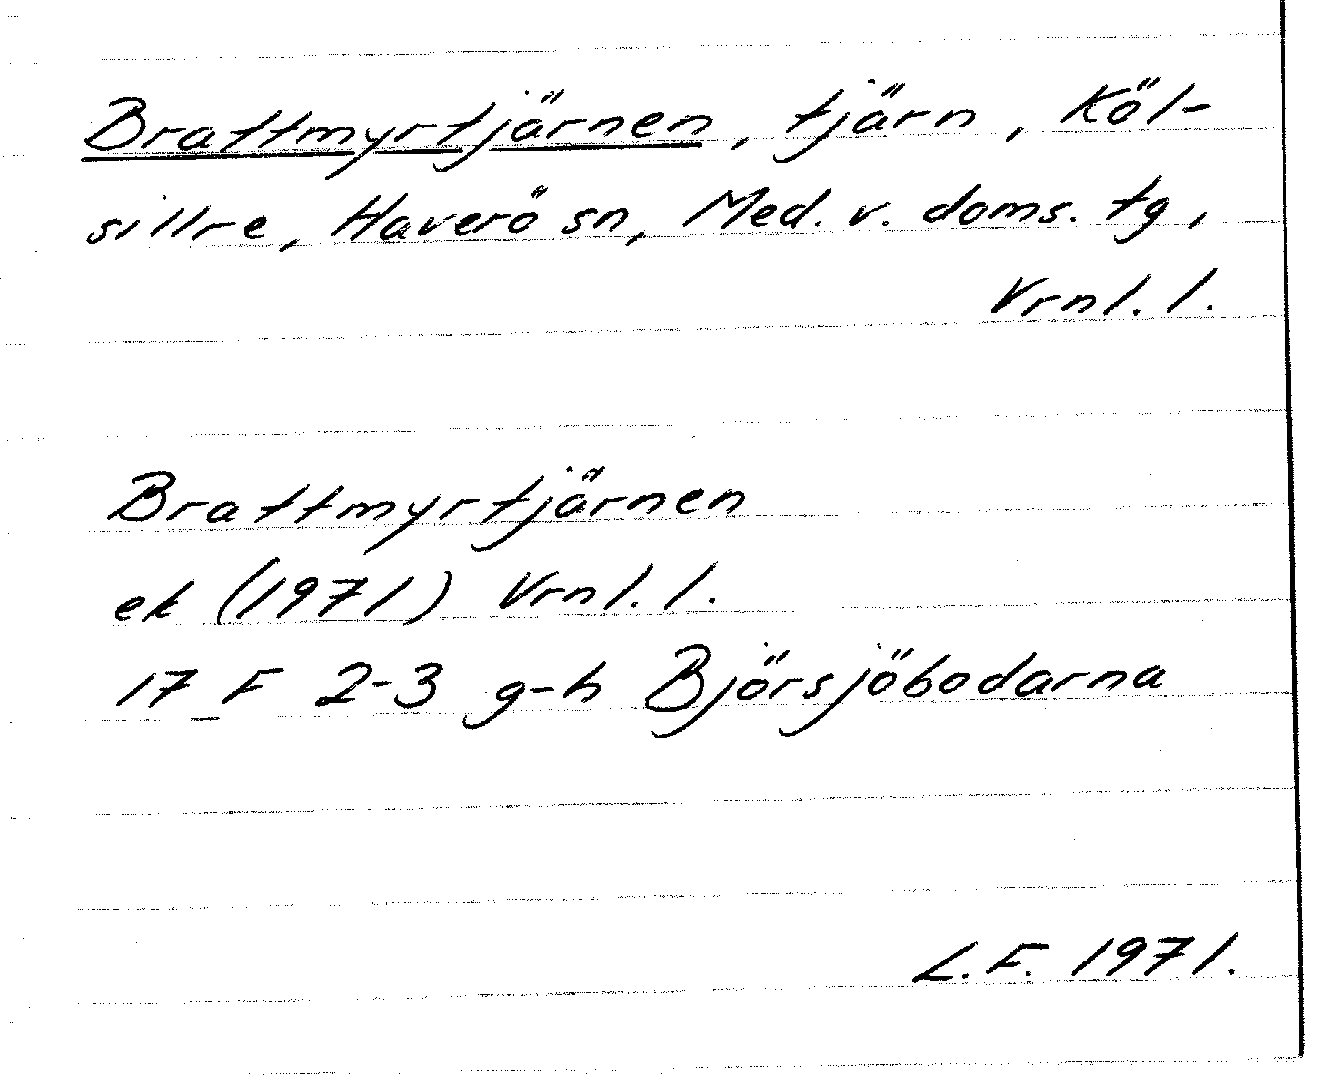 Brattmyrtjärnen, tjärn, Köl-
sillre, Haverö sn, Med. v. doms. tg,
Vrnl. l.
Brattmyrtjärnen
ek (1971) Vrnl. l.
17 F 2-3 g-h Björsjöbodarna
L.F. 1971.